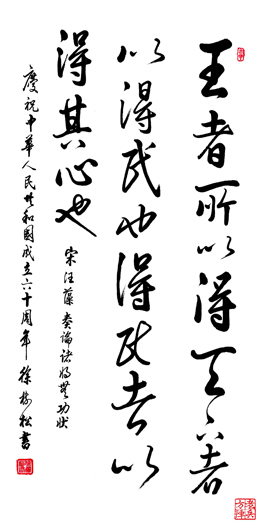 王者所以得天下者
以得民也得民者以
得其心也
宋汪藻奏論諸將無功狀
慶祝中華人民共和國成立六十周年